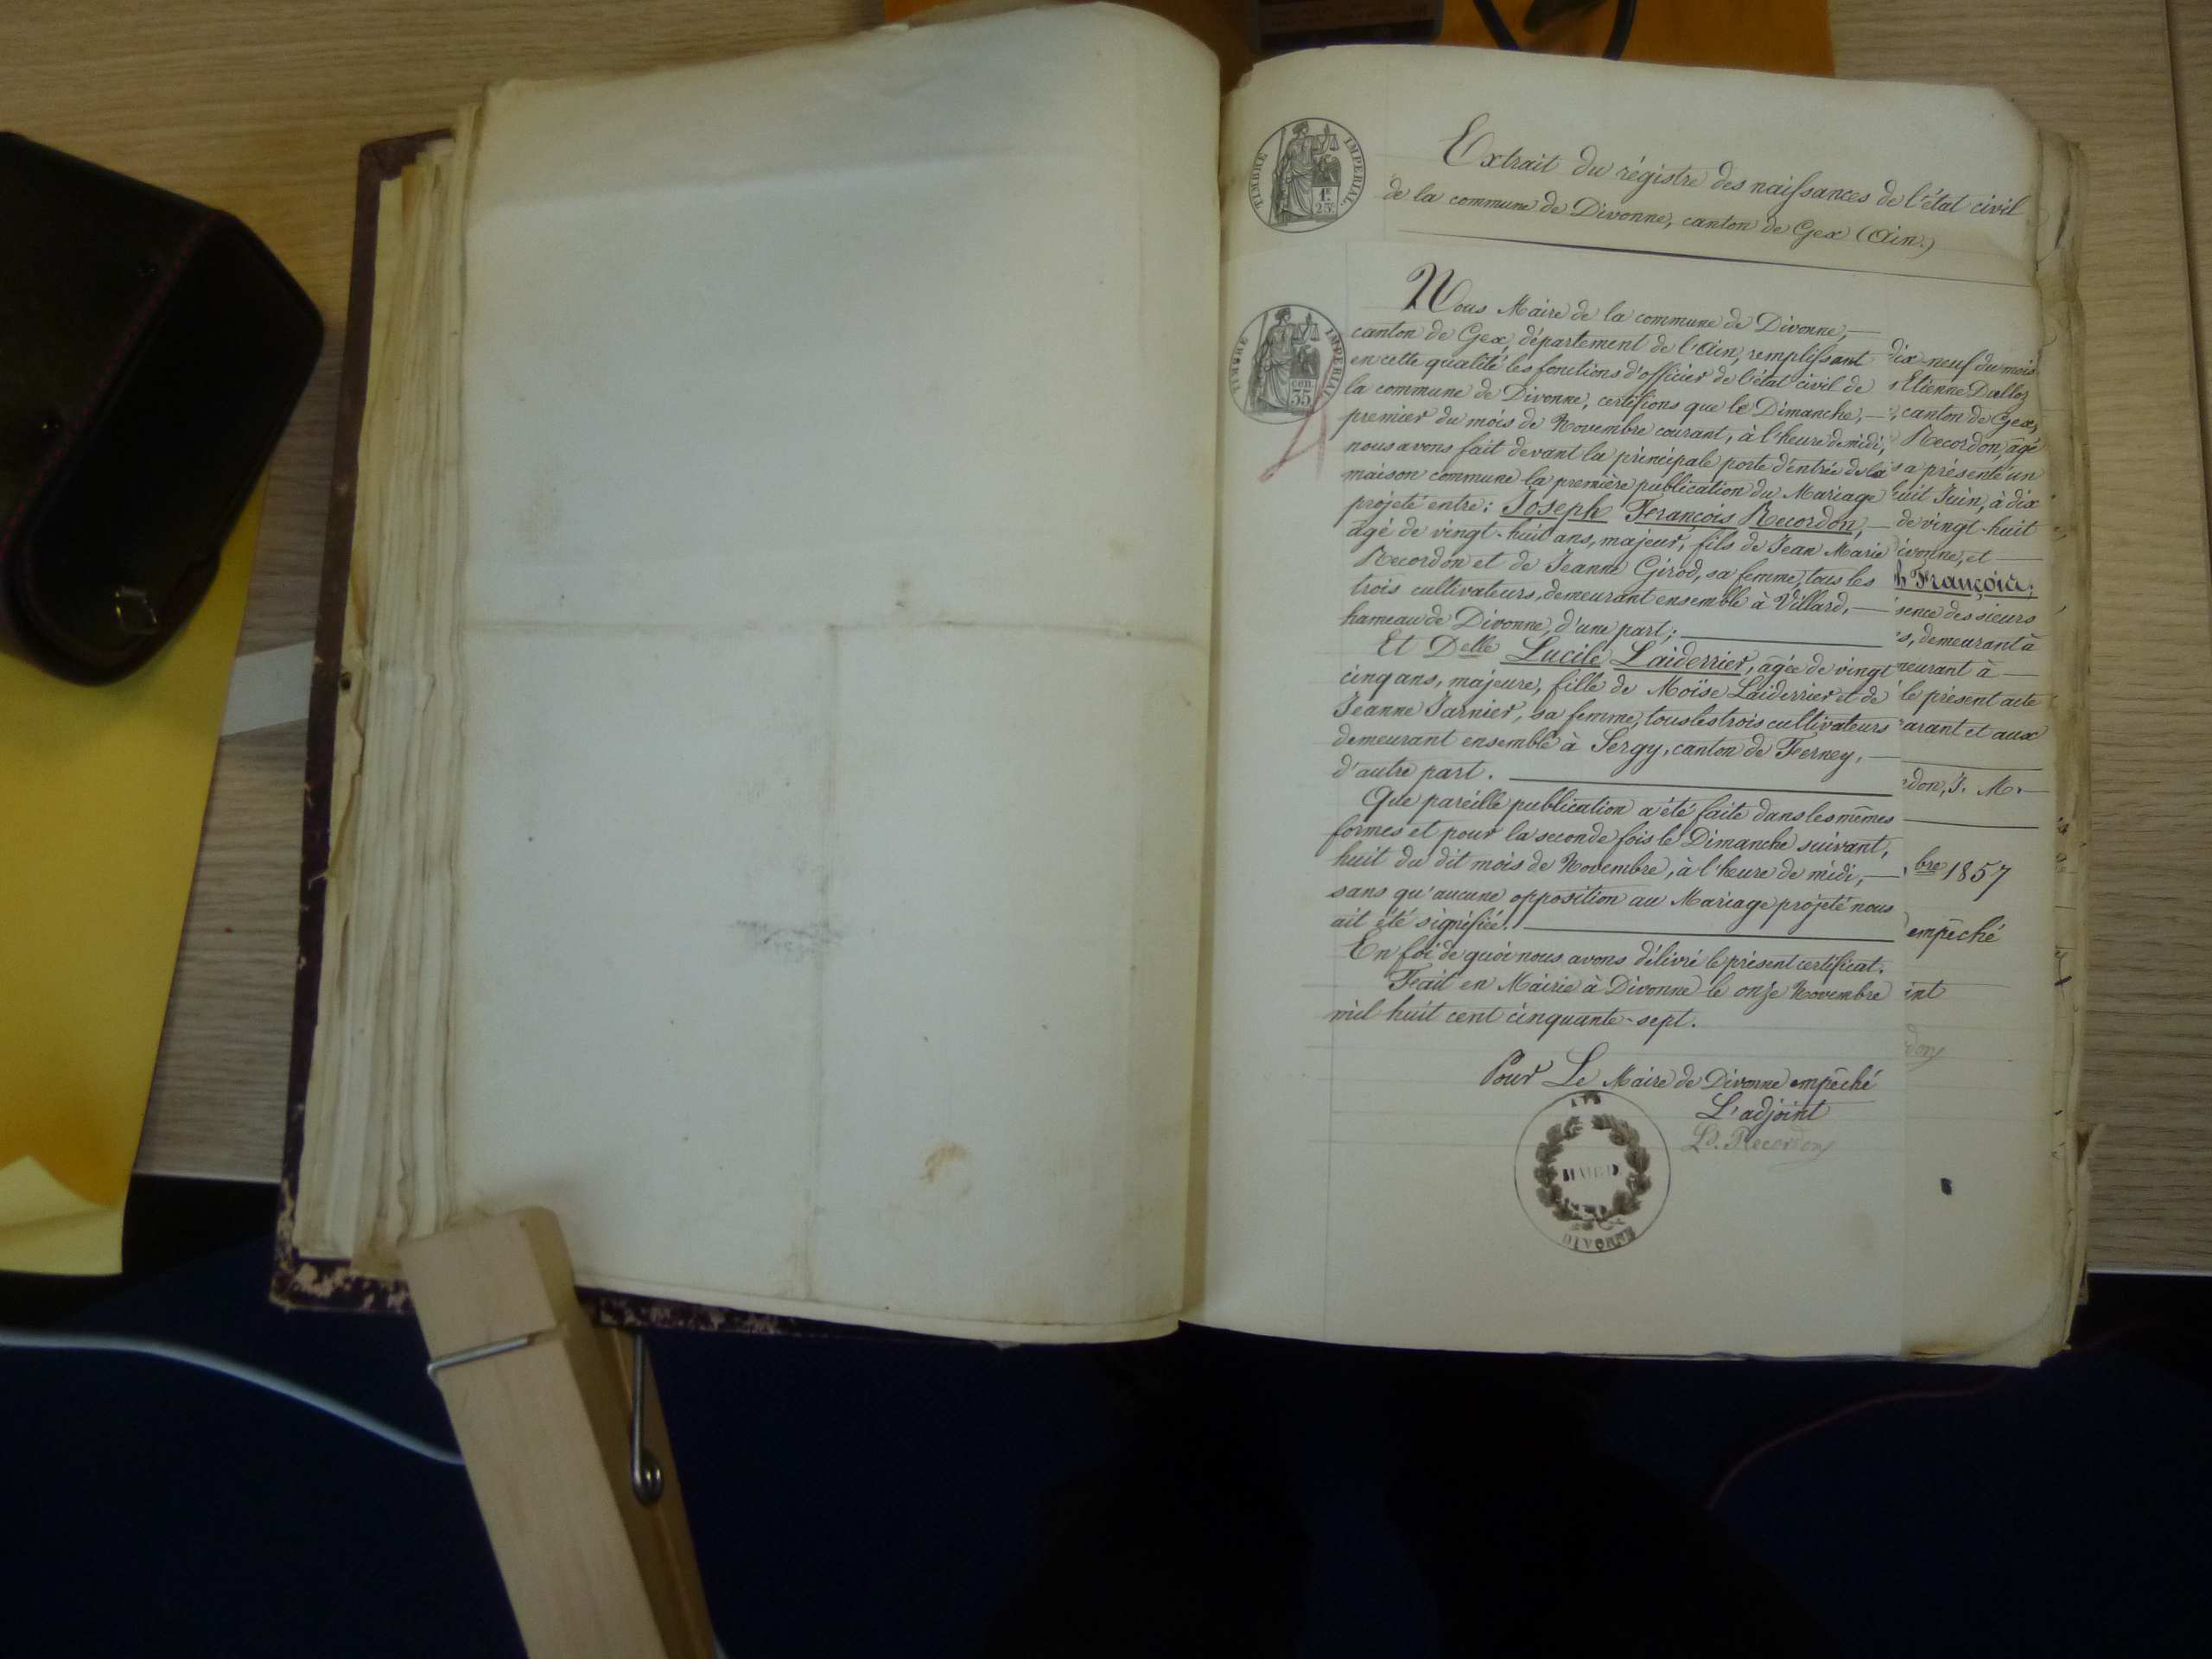 TIMBRE IMPERIAL
1f.
25c.
Extrait du régistre des naissances de l'état civil
de la commune de Divonne, canton de Gex (Ain.)
TIMBRE IMPERIAL
cen
35
Nous Maire de la commune de Divonne,
canton de Gex, département de l'Ain, remplissant
en cette qualité les fonctions d'officier de l'état civil de
la commune de Divonne, certifions que le Dimanche,
premier du mois de Novembre courant, à l'heure de midi,
nous avons fait devant la principale porte d'entrée de la
maison commune la première publication du Mariage
projeté entre: Joseph François Recordon,
âgé de vingt-huit ans, majeur, fils de Jean Marie
Recordon et de Jeanne Girod, sa femme, tous les
trois cultivateurs, demeurant ensemble à Villard,
hameau de Divonne, d'une part;
Et Delle Lucile Laiderrier, âgée de vingt
cinq ans, majeure, fille de Moïse Laiderrier et de
Jeanne Jarnier, sa femme, tous les trois cultivateurs
demeurant ensemble à Sergy, canton de Ferney,
d'autre part.
Que pareille publication a été faite dans les mêmes
formes et pour la seconde fois le Dimanche suivant,
huit du dit mois de Novembre, à l'heure de midi,
sans qu'aucune opposition au Mariage projeté nous
ait été signifiée.
En foi de quoi nous avons délivré le présent certificat.
Fait en Mairie à Divonne le onze Novembre
mil huit cent cinquante-sept.
Pour Le Maire de Divonne empêché
L'adjoint
Recordon
DIVONNE
dix-neuf du mois
Etienne Dalloz
canton de Gex,
Recordon, âgé
a présenté un
huit Juin, à dix
de vingt-huit
ivonne, et
h François;
sence des sieurs
s, demeurant à
meurant à
le présent acte
arant et aux
rdon, J. M.
bre 1857
empêché
int
don